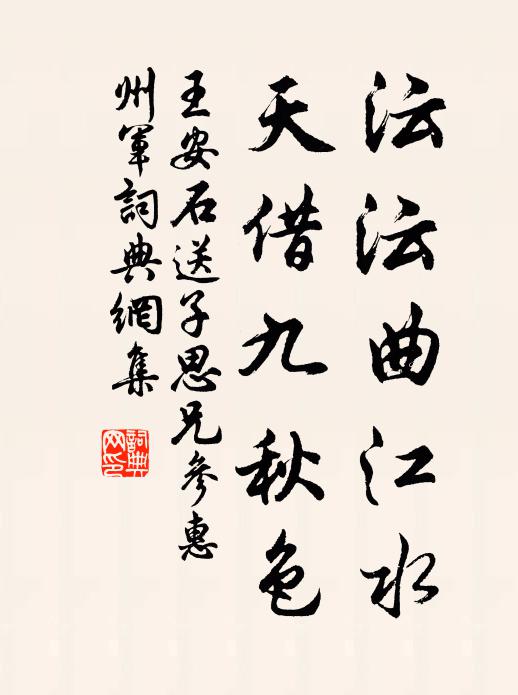 沄沄曲江水
天借九秋色
王安石送子思兄參惠
州軍詞典網集
詞典
网印